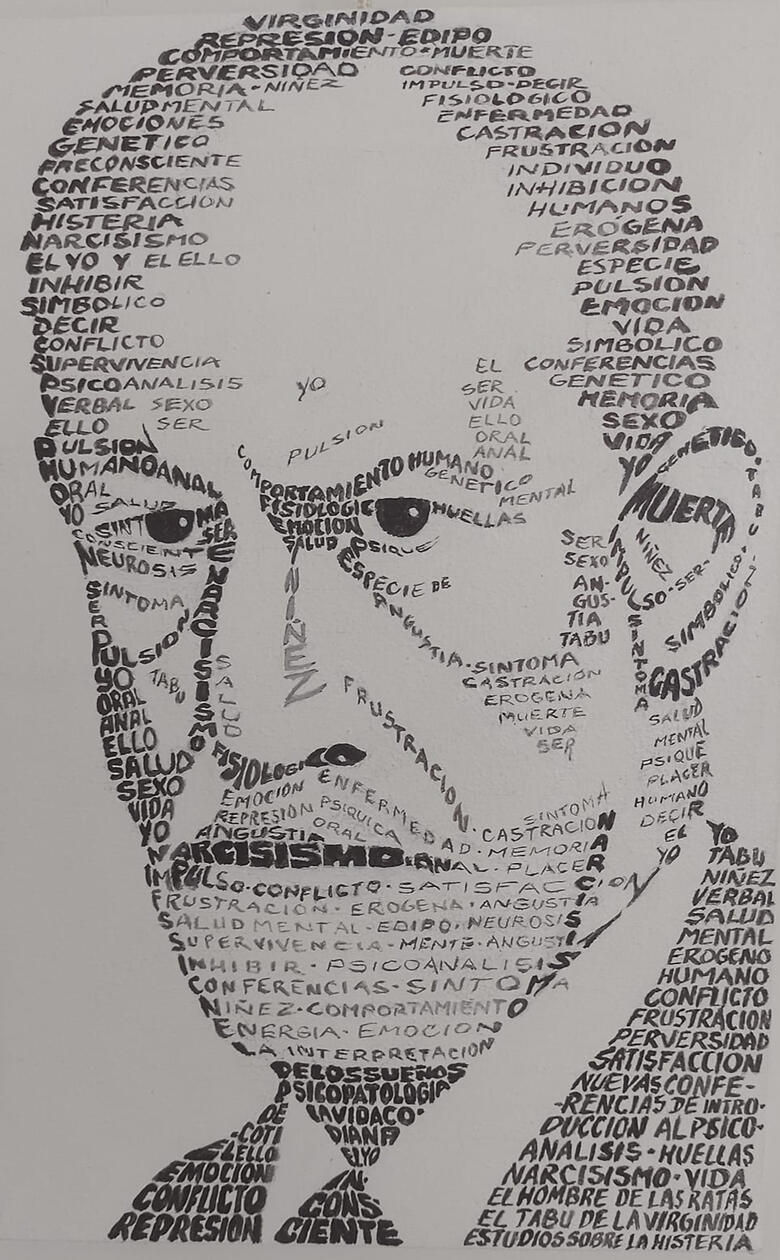 VIRGINIDAD
REPRESION-EDIPO
COMPORTAMIENTO•MUERTE
PERVERSIDAD CONFLICTO
MEMORIA-NIÑEZ IMPULSO-DECIR
SALUD MENTAL FISIOLOGICO
EMOCIONES ENFERMEDAD
GENETICO CASTRACION
PRECONSCIENTE FRUSTRACION
CONFERENCIAS INDIVIDUO
SATISFACCION INHIBICION
HISTERIA HUMANOS
NARCISISMO EROGENA
EL YO Y EL ELLO PERVERSIDAD
INHIBIR ESPECIE
SIMBOLICO PULSION
DECIR EMOCION
CONFLICTO VIDA
SUPERVIVENCIA SIMBOLICO
PSICOANALISIS YO EL CONFERENCIAS
VERBAL SEXO SER GENETICO
ELLO SER VIDA MEMORIA
PULSION PULSION ELLO SEXO
HUMANO ANAL ORAL VIDA
ORAL ANAL YO
YO SALUD COMPORTAMIENTO HUMANO GENETICO
SINT MA FISIOLOGIC GENETICO MENTAL TABU
CONSCIENT SER EMOCION HUELLAS MUERTA
NEUROSIS SALUD PSIQUE NIÑEZ
SINTOMA NARCISISMO ESPECIE DE SER IMPULSO-SER-
SER NIÑEZ ANGUSTIA-SINTOMA SEXO SIMBOLICO
PULSION CASTRACION AN-
YO TABU SALUD EROGENA GUS-
ORAL MUERTE TIA
ANAL VIDA TABU
ELLO SER SINTOMA
SALUD FRUSTRACION CASTRACION
SEXO FISIOLOGICO SALUD
VIDA EMOCION ENFERMEDAD MENTAL
YO REPRESION PSIQUICA PSIQUE
ANGUSTIA ORAL SINTOMA PLACER
NARCISISMO•ANAL-PLACER CASTRACION HUMANO
MEMORIA DECIR
IMPULSO-CONFLICTO-SATISFACCION EL
FRUSTRACION-EROGENA-ANGUSTIA YO
SALUD MENTAL-EDIPO-NEUROSIS YO
SUPERVIVENCIA-MENTE-ANGUSTIA TABU
INHIBIR-PSICOANALISIS NIÑEZ
CONFERENCIAS-SINTOMA VERBAL
NIÑEZ-COMPORTAMIENTO SALUD
ENERGIA-EMOCION MENTAL
LA INTERPRETACION EROGENO
DE LOS SUEÑOS HUMANO
PSICOPATOLOGIA CONFLICTO
DE LA VIDA CO- FRUSTRACION
-COTI DIANA PERVERSIDAD
ELELLO EL YO SATISFACCION
EMOCION IN- NUEVAS CONFE-
CONFLICTO CONS- -RENCIAS DE INTRO-
REPRESION CIENTE DUCCION AL PSICO-
ANALISIS-HUELLAS
NARCISISMO-VIDA
EL HOMBRE DE LAS RATAS
EL TABU DE LA VIRGINIDAD
ESTUDIOS SOBRE LA HISTERIA